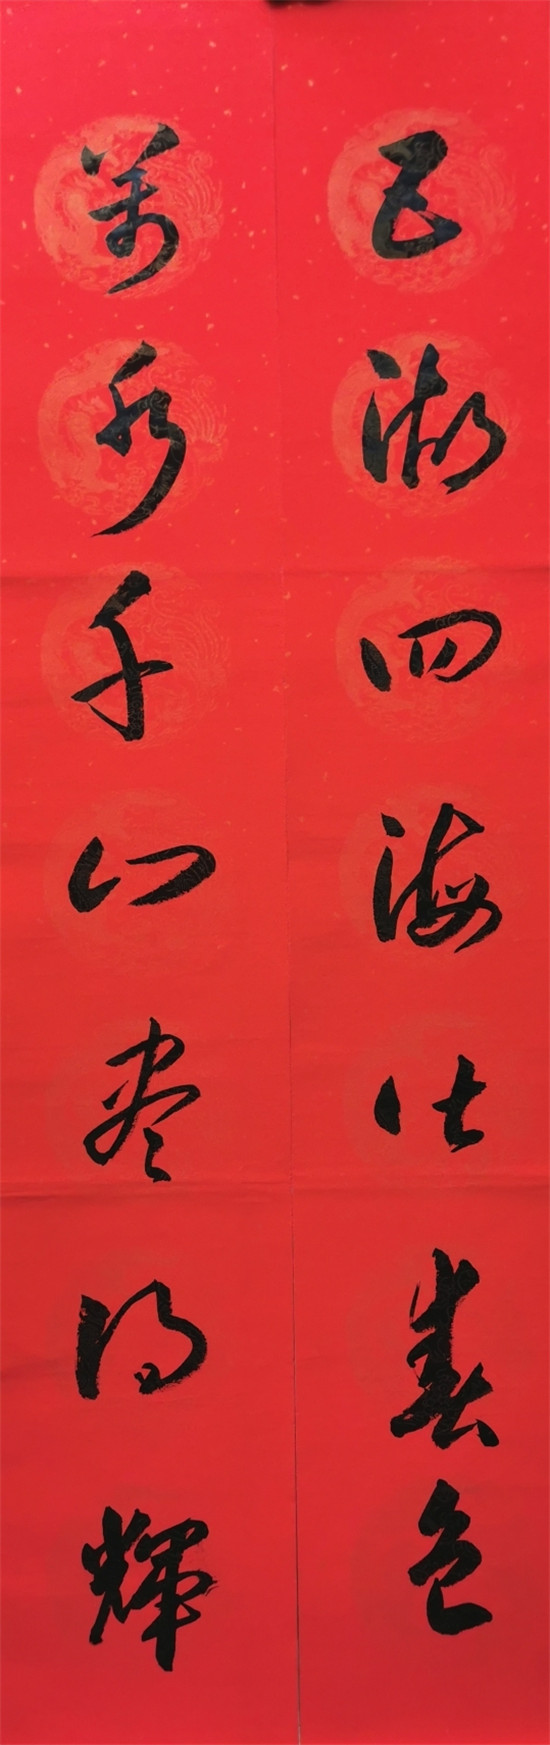 五湖四海皆春色
萬水千山尽得輝